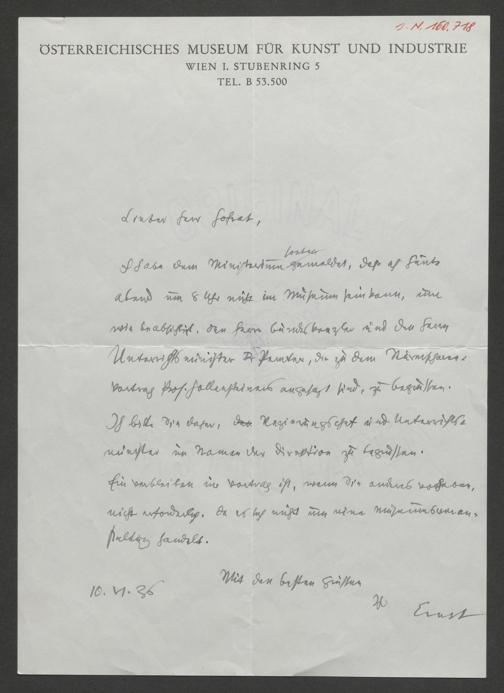 J. N. 160.718
ÖSTERREICHISCHES MUSEUM FÜR KUNST UND INDUSTRIE
WIEN I, STUBENRING 5
TEL. B 53.500
Lieber Herr Hofrat,
Ich habe dem Ministerium gemeldet, daß ich heute
abend um 8 Uhr nicht im Museum sein kann, um
wie beabsichtigt, den Herrn Bundeskanzler und den Herrn
Unterrichtsminister Pernter, die zu dem
vortrag Prof. Holzmeisters angesagt sind, zu begrüssen.
Ich bitte Sie daher, den Regierungschef und Unterrichts-
minister im Namen der Direktion zu begrüssen.
Ein verbleiben im Vortrag ist, wenn Sie anders
nicht erforderlich, da es sich nicht um eine Museumsveran-
staltung handelt.
Mit den besten Grüssen
10. VI. 36
Ernst